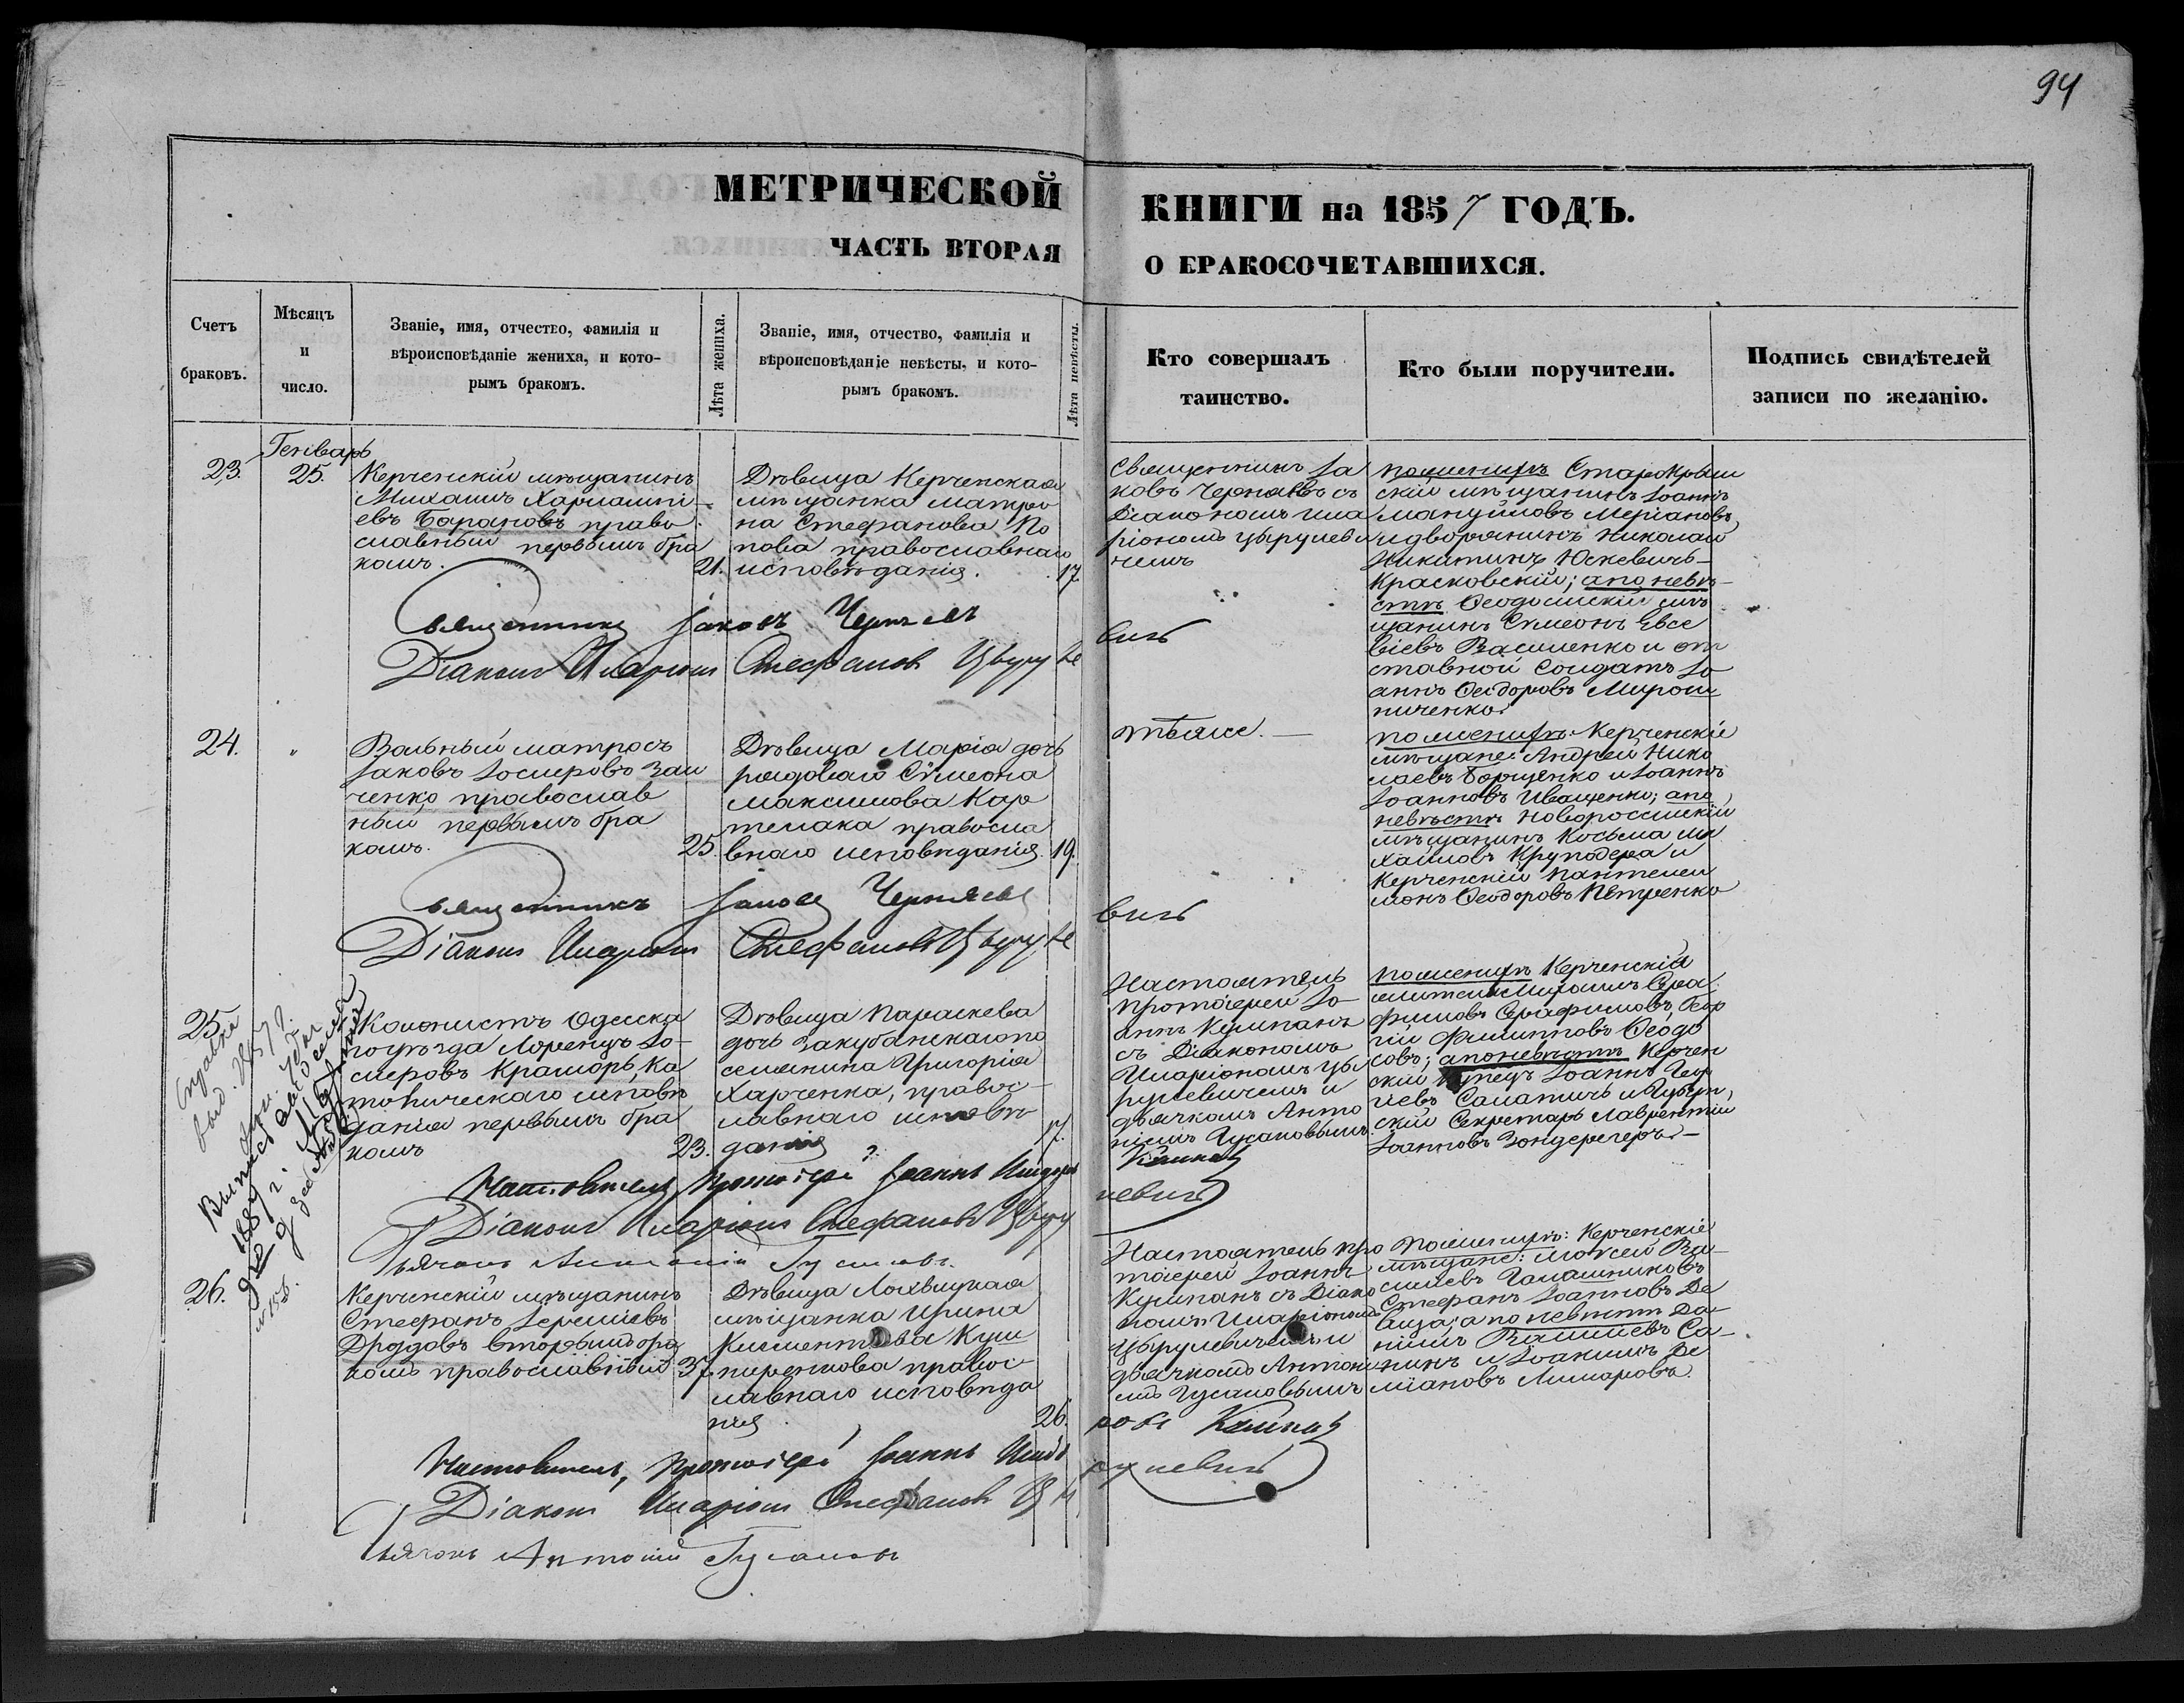 94
МЕТРИЧЕСКОЙ
КНИГИ на 1857 ГОДЪ.
ЧАСТЬ ВТОРАЯ
О БРАКОСОЧЕТАВШИХСЯ.
Счетъ
браковъ.
Мѣсяцъ
и
число.
Званіе, имя, отчество, фамилія и
вѣроисповѣданіе жениха, и кото-
рымъ бракомъ.
Лѣта жениха.
Званіе, имя, отчество, фамилія и
вѣроисповѣданіе невѣсты, и кото-
рымъ бракомъ.
Лѣта невѣсты.
Кто совершалъ
таинство.
Кто были поручители.
Подпись свидѣтелей
записи по желанію.
Генварь
23.
25.
Керченскій мѣщанинъ
Михаилъ Харлампі-
евъ Барановъ право
славный первымъ бра
комъ.
21.
Дѣвица Керченская
мѣщанка Матро
на Стефанова По
пова православнаго
исповѣданія.
17.
Священникъ Іа
ковъ Черняевъ съ
Діакономъ Ила
ріономъ Цырулеви
чемъ
по женихѣ Старокрым
скій мѣщанинъ Іоаннъ
Мануйловъ Меріановъ,
и дворянинъ Николай
Никитинъ Юскевичъ-
Красковскій; а по невѣ-
стѣ Ѳеодосійскій мѣ
щанинъ Сѵмеонъ Евсе
віевъ Василенко и от
ставной солдатъ Іо
аннъ Ѳеодоровъ Мирош
ниченко.
Священникъ Іаковъ Черняевъ
Діаконъ Иларіонъ Стефановъ Цыруле
вичъ
24.
"
Вольный матросъ
Іаковъ Іосифовъ Заи
ченко православ
ный первымъ бра
комъ.
25.
Дѣвица Марія дочь
рядоваго Сѵмеона
Максимова Кар
темака правосла
внаго исповѣданія.
19.
тѣже.
по женихѣ: Керченскіе
мѣщане: Андрей Нико
лаевъ Борщенко и Іоаннъ
Іоанновъ Иващенко; а по
невѣстѣ Новороссійскій
мѣщанинъ Косьма Ми
хаиловъ Круподера и
Керченскій Пантелеи
монъ Ѳеодоровъ Петренко
Священникъ Іаковъ Черняевъ
Діаконъ Иларіонъ Стефановъ Цыруле
вичъ
25.
Справка
выд. 1857 г.
Выпис
1887 г.
Колонистъ Одесска
го уѣзда Лоренцъ Іо-
сифовъ Краморъ, Ка
толическаго исповѣ
данія первымъ бра
комъ
23.
Дѣвица Параскева
дочь Закубанскаго по
селянина Григорія
Харченка, правос-
лавнаго исповѣ
данія
17.
Настоятель
протоіерей Іо-
аннъ Кумпанъ
съ Діакономъ
Иларіономъ Цы
рулевичемъ и
дьячкомъ Анто
ніемъ Гусаковымъ
по женихѣ Керченскіе
жители Миронъ Сера
фимовъ Серафимовъ, Геор
гій Филипповъ Ѳеодо
совъ; а по невѣстѣ Керчен
скій купецъ Іоаннъ Геор
гіевъ Салатичъ и Губерн
скій Секретарь Лаврентій
Іоанновъ Зондерегеръ.
Настоятель, протоіерей Іоаннъ
Кумпанъ
Діаконъ Иларіонъ Стефановъ Цыру
левичъ
Дьячокъ Антоній Гусаковъ.
26.
Керченскій мѣщанинъ
Стефанъ Іереміевъ
Дроздовъ вторымъ бра
комъ православный
37.
Дѣвица Лохвицкая
мѣщанка Ирина
Климентова Куш
ниренкова правос-
лавнаго исповѣда
нія
26.
Настоятель про
тоіерей Іоаннъ
Кумпанъ съ Діако
номъ Иларіономъ
Цырулевичемъ и
дьячкомъ Антоні
емъ Гусаковымъ
по женихѣ: Керченскіе
мѣщане: Моисей Ва-
силіевъ Галашниковъ
Стефанъ Іоанновъ Де
а по невѣстѣ Да-
ніилъ Василіевъ Са-
нинъ и Іоакимъ Де
міановъ Лимаровъ.
Настоятель, протоіерей Іоаннъ
Кумпанъ
Діаконъ Иларіонъ Стефановъ Цы
рулевичъ
Дьячокъ Антоній Гусаковъ